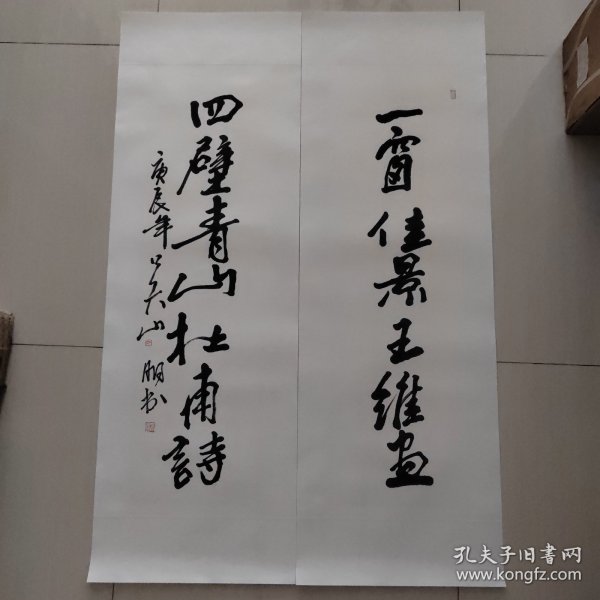 一窗佳景王維画
四壁青山杜甫詩
庚辰年
山
孔夫子旧书网
www.kongfz.com